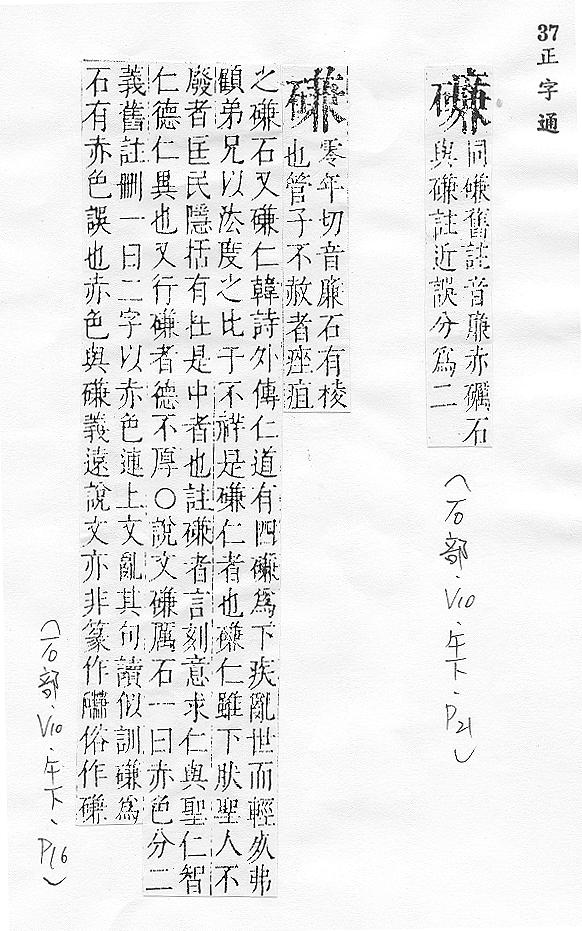 37正字通
同磏舊註音廉赤礪石
與磏註近誤分爲二
(石部·V10·午下·P21)
磏
零年切音廉石有棱
也管子不赦者痤疽
之磏石又磏仁韓詩外傳仁道有四磏爲下疾亂世而輕死弗
顧弟兄以法度之比于不祥是磏仁者也磏仁雖下肰聖人不
廢者匡民隱括有在是中者也註磏者言刻意求仁與聖仁智
仁德仁異也又行磏者德不厚○說文磏厲石一曰赤色分二
義舊註刪一曰二字以赤色連上文亂其句讀似訓磏爲
石有赤色誤也赤色與磏義遠說文亦非篆作俗作
(石部·V10·午下·P16)